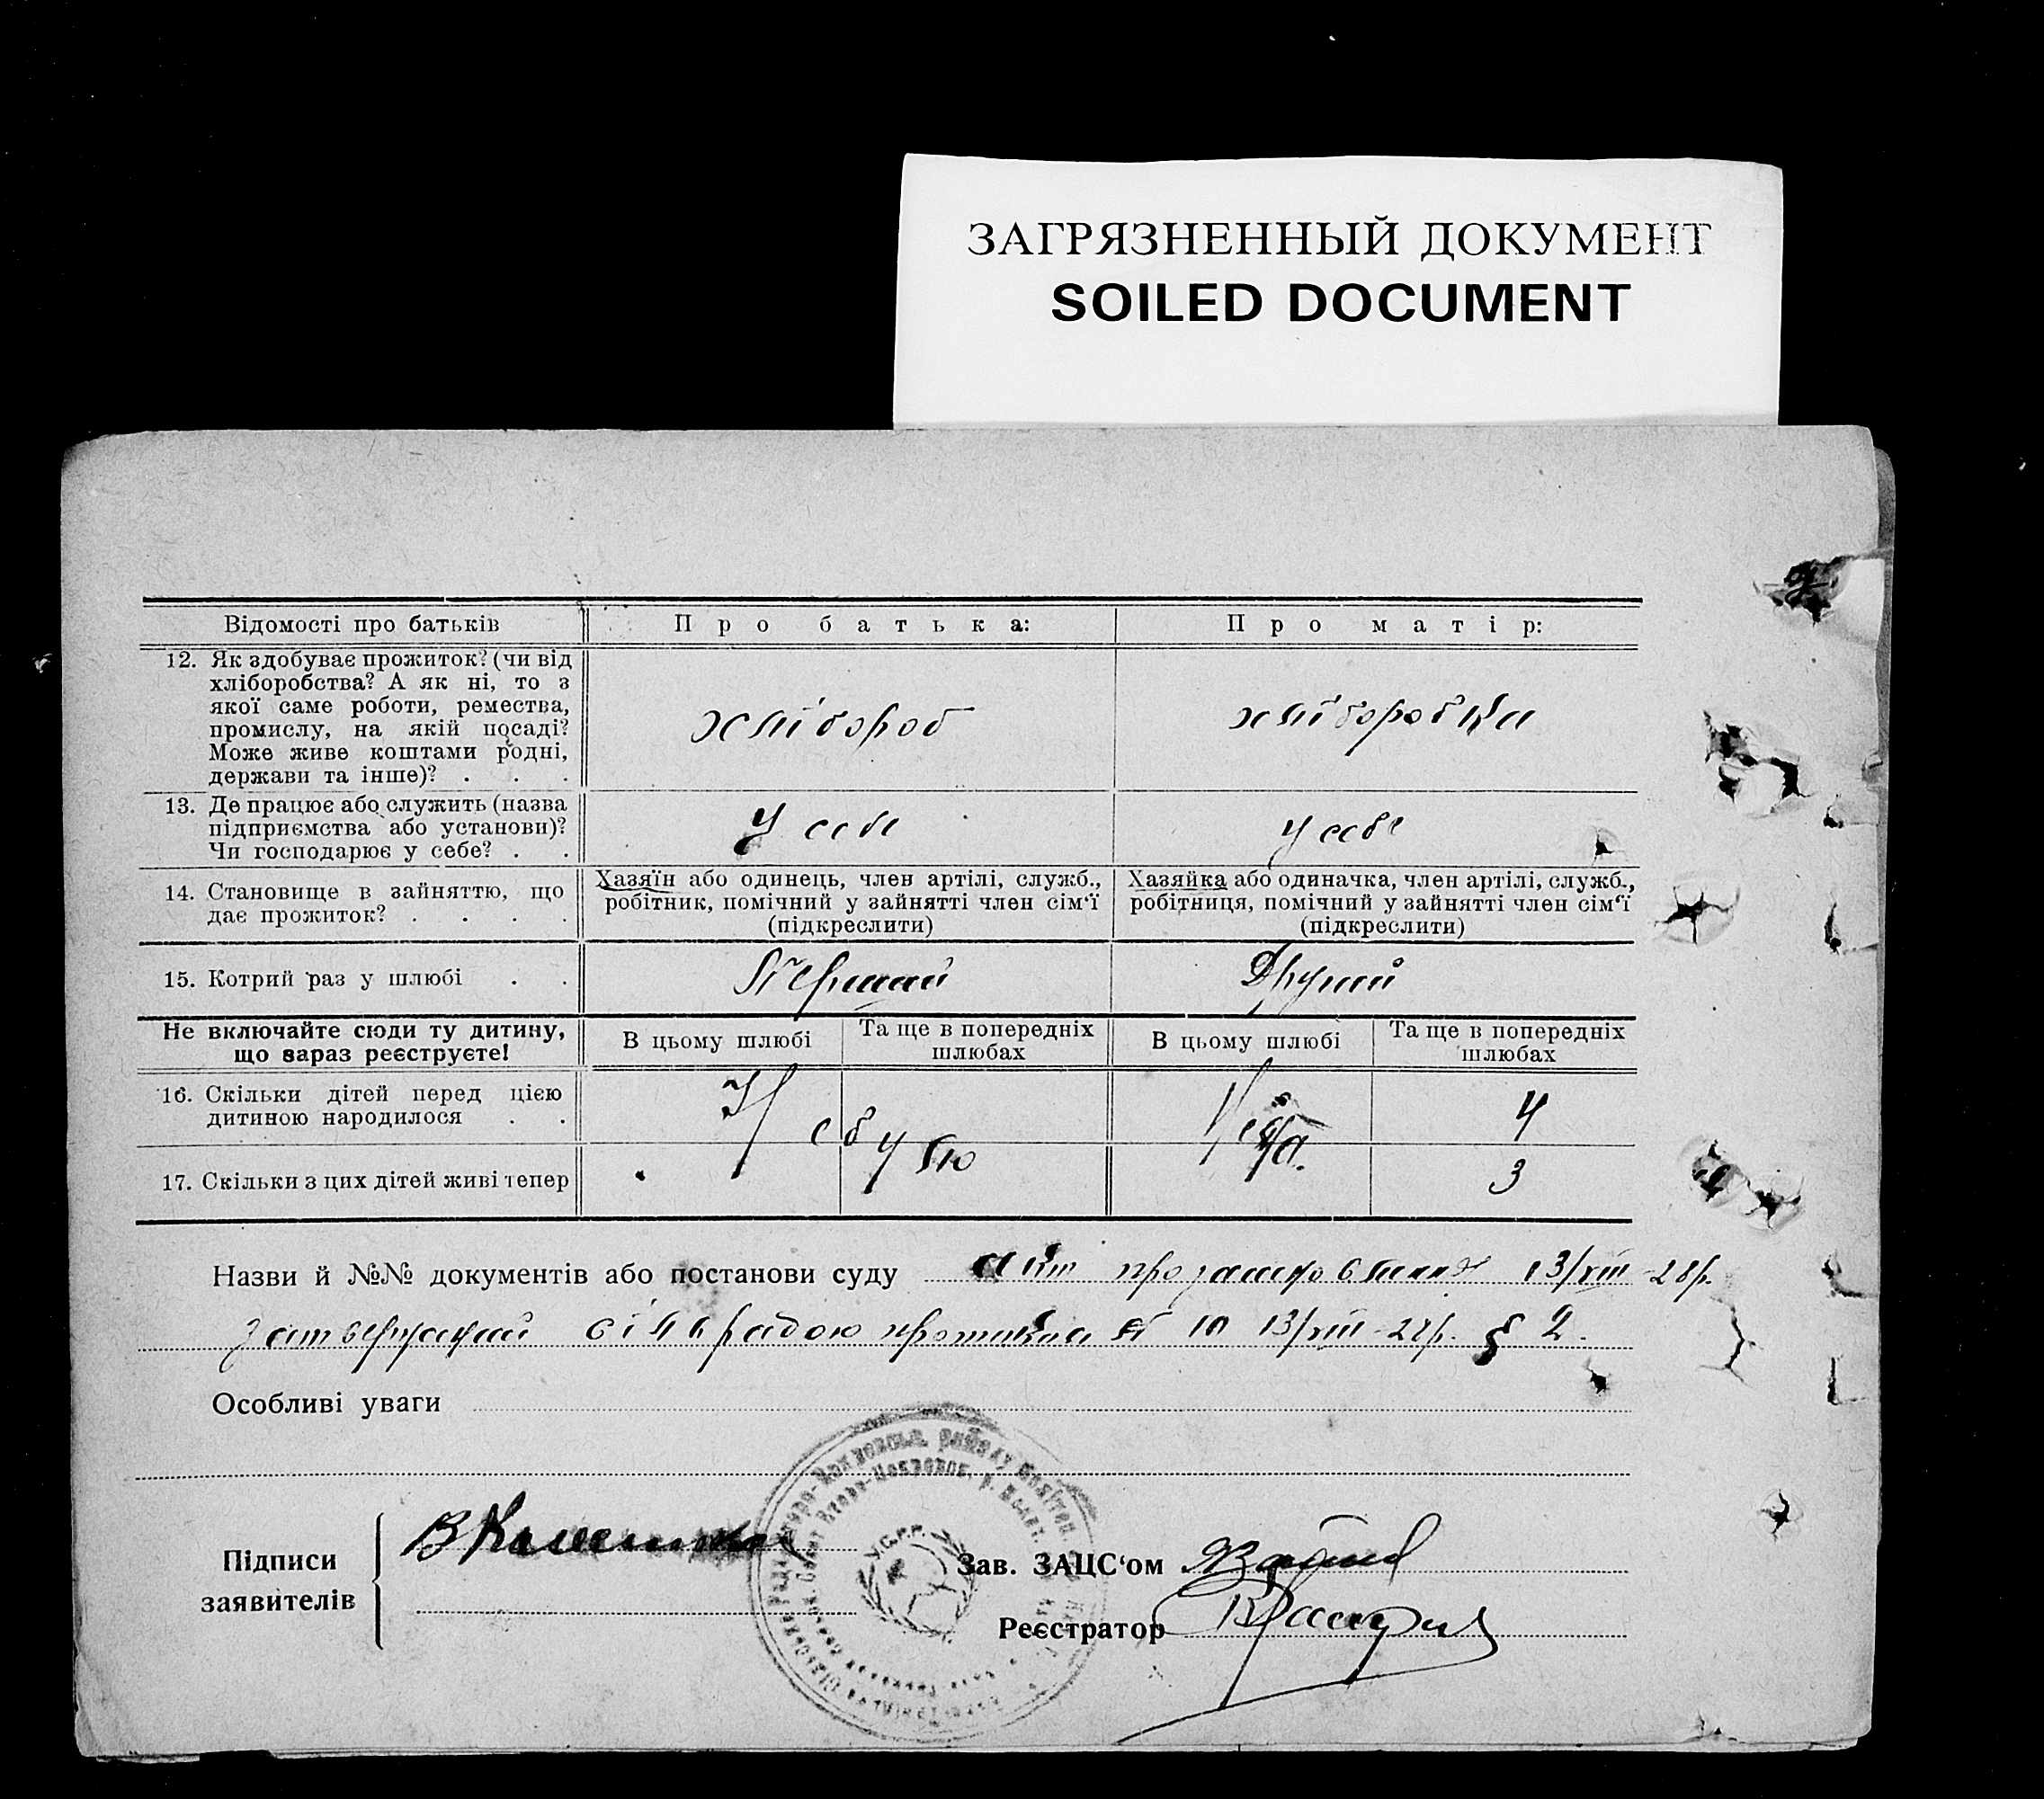 ЗАГРЯЗНЕННЫЙ ДОКУМЕНТ
SOILED DOCUMENT
Відомості про батьків
Про батька:
Про матір:
12. Як здобуває прожиток? (чи від
хліборобства? А як ні, то з
якої саме роботи, ремества,
промислу, на якій посаді?
Може живе коштами родні,
держави та інше)? . . .
хлібороб
хліборобка
13. Де працює або служить (назва
підприємства або установи)?
Чи господарює у себе? . .
у себе
у себе
14. Становище в зайняттю, що
дає прожиток? . . . .
Хазяїн або одинець, член артілі, служб.,
робітник, помічний у зайнятті член сім'ї
(підкреслити)
Хазяйка або одиначка, член артілі, служб.,
робітниця, помічний у зайнятті член сім'ї
(підкреслити)
15. Котрий раз у шлюбі . .
Перший
Другий
Не включайте сюди ту дитину,
що зараз реєструєте!
В цьому шлюбі
Та ще в попередніх
шлюбах
В цьому шлюбі
Та ще в попередніх
шлюбах
16. Скільки дітей перед цією
дитиною народилося . .
4
17. Скільки з цих дітей живі тепер
3
Назви й №№ документів або постанови суду акт про 13/VIII-28р.
сільрадою 13/VIII-28р. § 2.
Особливі уваги
Підписи
заявителів
У.С.Р.Р.
Зав. ЗАЦС'ом
Реєстратор